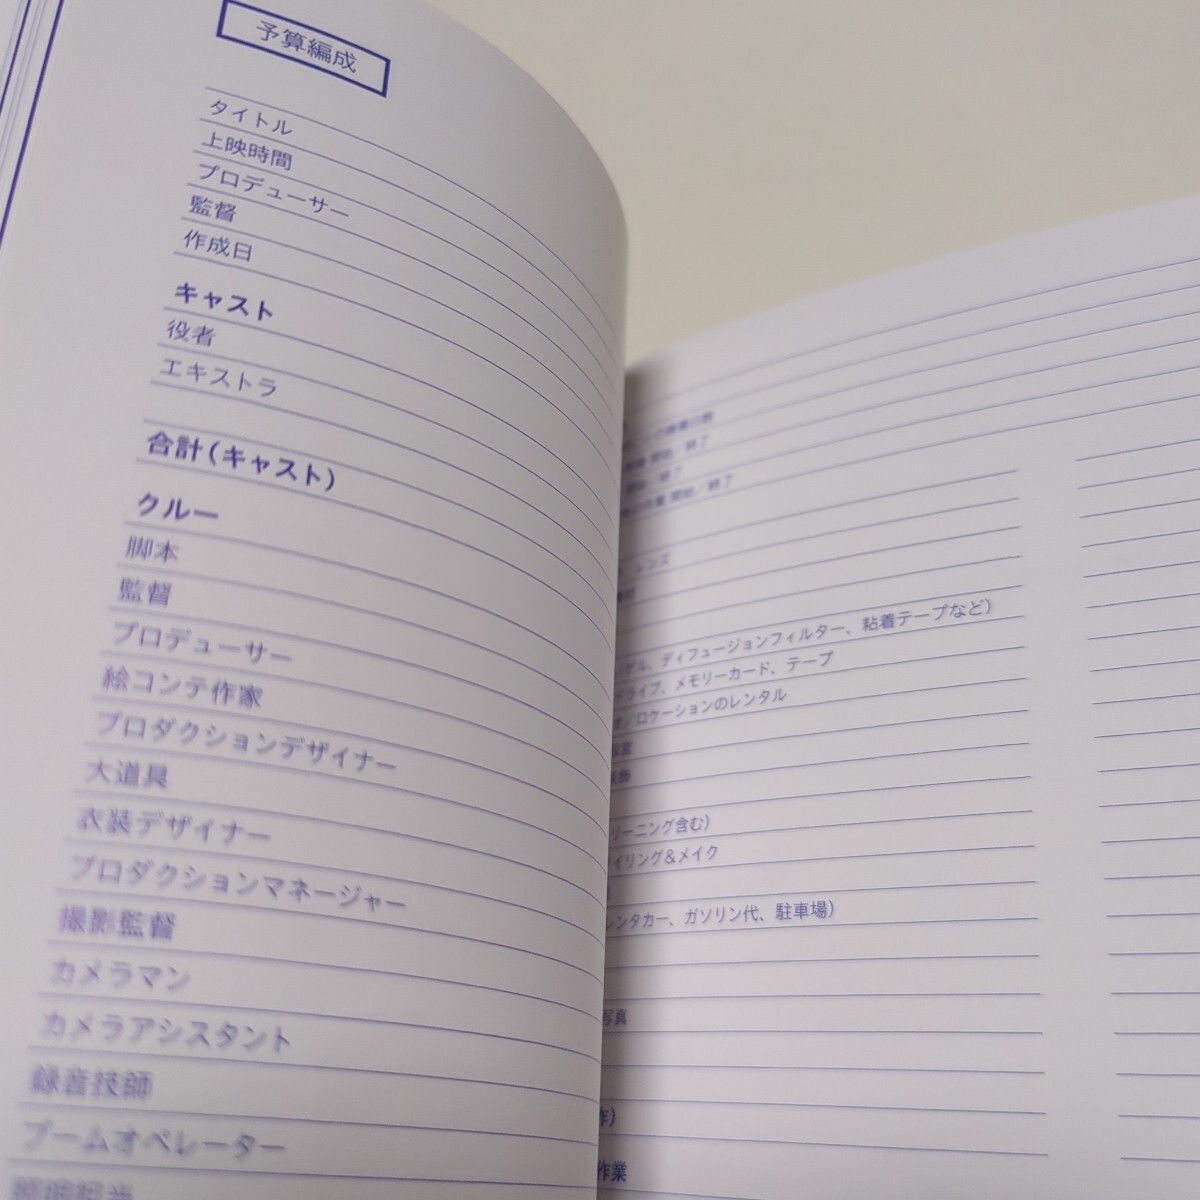 予算編成
タイトル
上映時間
プロデューサー
監督
作成日
キャスト
役者
エキストラ
合計(キャスト)
クルー
脚本
監督
プロデューサー
絵コンテ作家
プロダクションデザイナー
大道具
衣装デザイナー
プロダクションマネージャー
撮影監督
カメラマン
カメラアシスタント
録音技師
ブームオペレーター
照明担当
開始／終了
開始／終了
レンズ
ディフュージョンフィルター、粘着テープなど)
メモリーカード、テープ
ロケーションのレンタル
リーニング含む)
イリング&メイク
レンタカー、ガソリン代、駐車場)
写真
作業